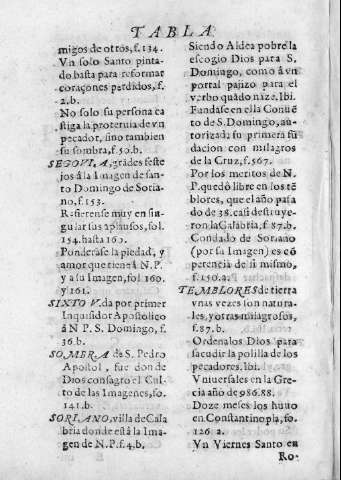 TABLA
migos de otros, f. 134.
Vn solo Santo pinta-
do basta para reformar
coraçones perdidos, f.
2.b.
No solo su persona ca
stiga la proteruia de vn
pecador, sino tambien
su sombra, f. 50.b.
SEGOVIA, grādes feste
jos à la Imagen de san-
to Domingo de Soria-
no, f. 153.
Refierense muy en sin-
gular sus aplausos, fol.
154. hasta 160.
Ponderase la piedad, y
amor que tiene à N.P.
y a su Imagen, fol. 160.
y 161.
SIXTO V. da por primer
Inquisidor Apostolico
à N P. S. Domingo, f.
36.b.
SOMBRA de S. Pedro
Apostol, fue don de
Dios consagro el Cul-
to de las Imagenes, fo.
141.b.
SORIANO, villa de Cala
bria donde està la Ima
gen de N.P. f. 4.b.
Siendo Aldea pobre la
escogio Dios para S.
Domingo, como à vn
portal pajizo para el
verbo quādo naze. Ibi.
Fundase en ella Conuē
to de S. Domingo, au-
torizada su primera fū
dacion con milagros
de la Cruz, f. 567.
Por los meritos de N.
P. quedò libre en los tē
blores, que el año pasa
do de 38. casi destruye-
ron la Calabria, f. 87.b.
Condado de Soriano
(por su Imagen) es cō
perencia de si mismo,
f. 150.a.
TEMBLORES de tierra
vnas vezes son natura-
les, y otras milagrosos,
f. 87.b.
Ordenalos Dios para
sacudir la polilla de los
pecadores. Ibi.
Vniuersales en la Gre-
cia año de 986.88.
Doze meses los huuo
en Constantinopla, fo.
126.a.
Vn Viernes Santo en
Ro-